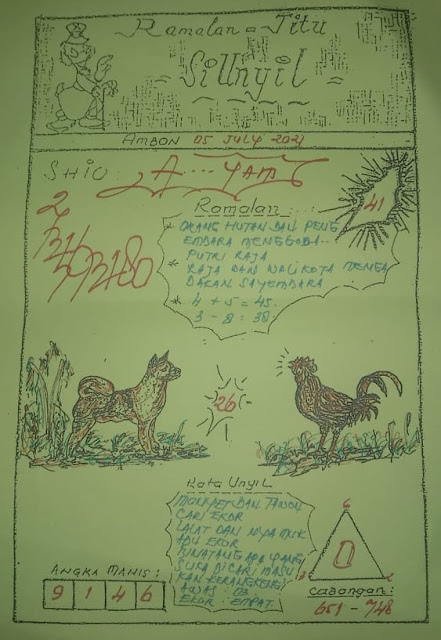 Ramalan = Titu
= SiUnyil =
AMBON 05 JULY 2021
SHIO: A...YAM
2
41
Ramalan
* ORANG HUTAN DAN PENG
EMBARA MENGGODA..
PUTRI RAJA
* RAJA DAN WALIKOTA MENGA
DAKAN SAYEMBARA
* 4 + 5 = 45.
3 - 8 = 38.
26
Kata UnyiL
MONYET DAN TAWON
CARI EKOR
LALAT DAN NYAMUK
ADU EKOR
BINATANG APA YANG
SUKA DICARI MASU
KAN KERANGKENG
AWAS : 03
EKOR : EMPAT.
ANGKA MANIS:
9 1 4 6
6
0
Cabangan:
651 - 748